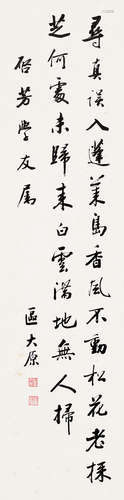 尋真誤入蓬萊島香風不動松花老採
芝何處未歸來白雲滿地無人掃
啟芳學友屬
區大原